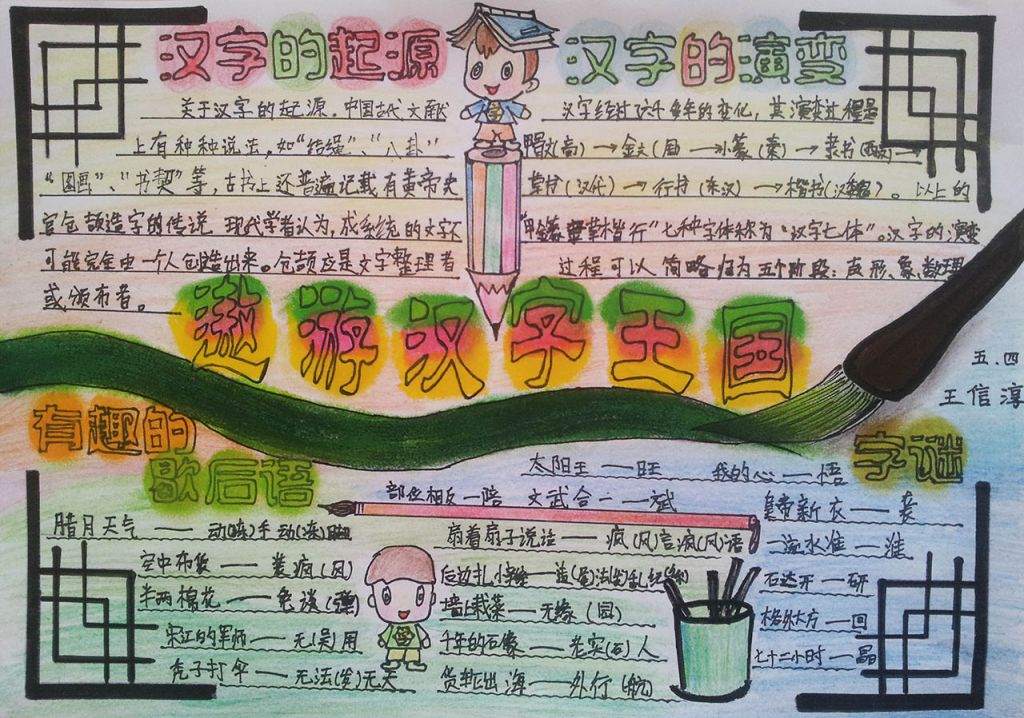 汉字的起源
关于汉字的起源，中国古代文献
上有种种说法，如“结绳”、“八卦”、
“图画”、“书契”等，古书上还普遍记载有黄帝史
官仓颉造字的传说 现代学者认为，成系统的文字不
可能完全由一个人创造出来。仓颉应是文字整理者
或颁布者。
汉字的演变
汉字经过了六千多年的变化，其演变过程是
甲骨文(商)→金文(周)→小篆(秦)→隶书(西汉)→
草书(汉代)→行书(东汉)→楷书(汉末)。以上的
“甲金篆隶草楷行”七种字体称为“汉字七体”。汉字的演变
过程可以简略归为五个阶段：声、形、象、数、理
遨游汉字王国
五.四
王信淳
有趣的
歇后语
腊月天气——动(冻)手动(冻)脚
空中布袋——装疯(风)
半两棉花——免谈(弹)
宋江的军师——无(吴)用
秃子打伞——无法(发)无天
扇着扇子说话——疯(风)言疯(风)语
墙上栽菜——无缘(园)
千年的石像——老实(石)人
货船出海——外行(航)
字谜
太阳王——旺
我的心——悟
部位相反—陪
文武合一—斌
皇帝新衣——袭
一逕水准——淮
石达开—研
格外大方—回
七十二小时—晶